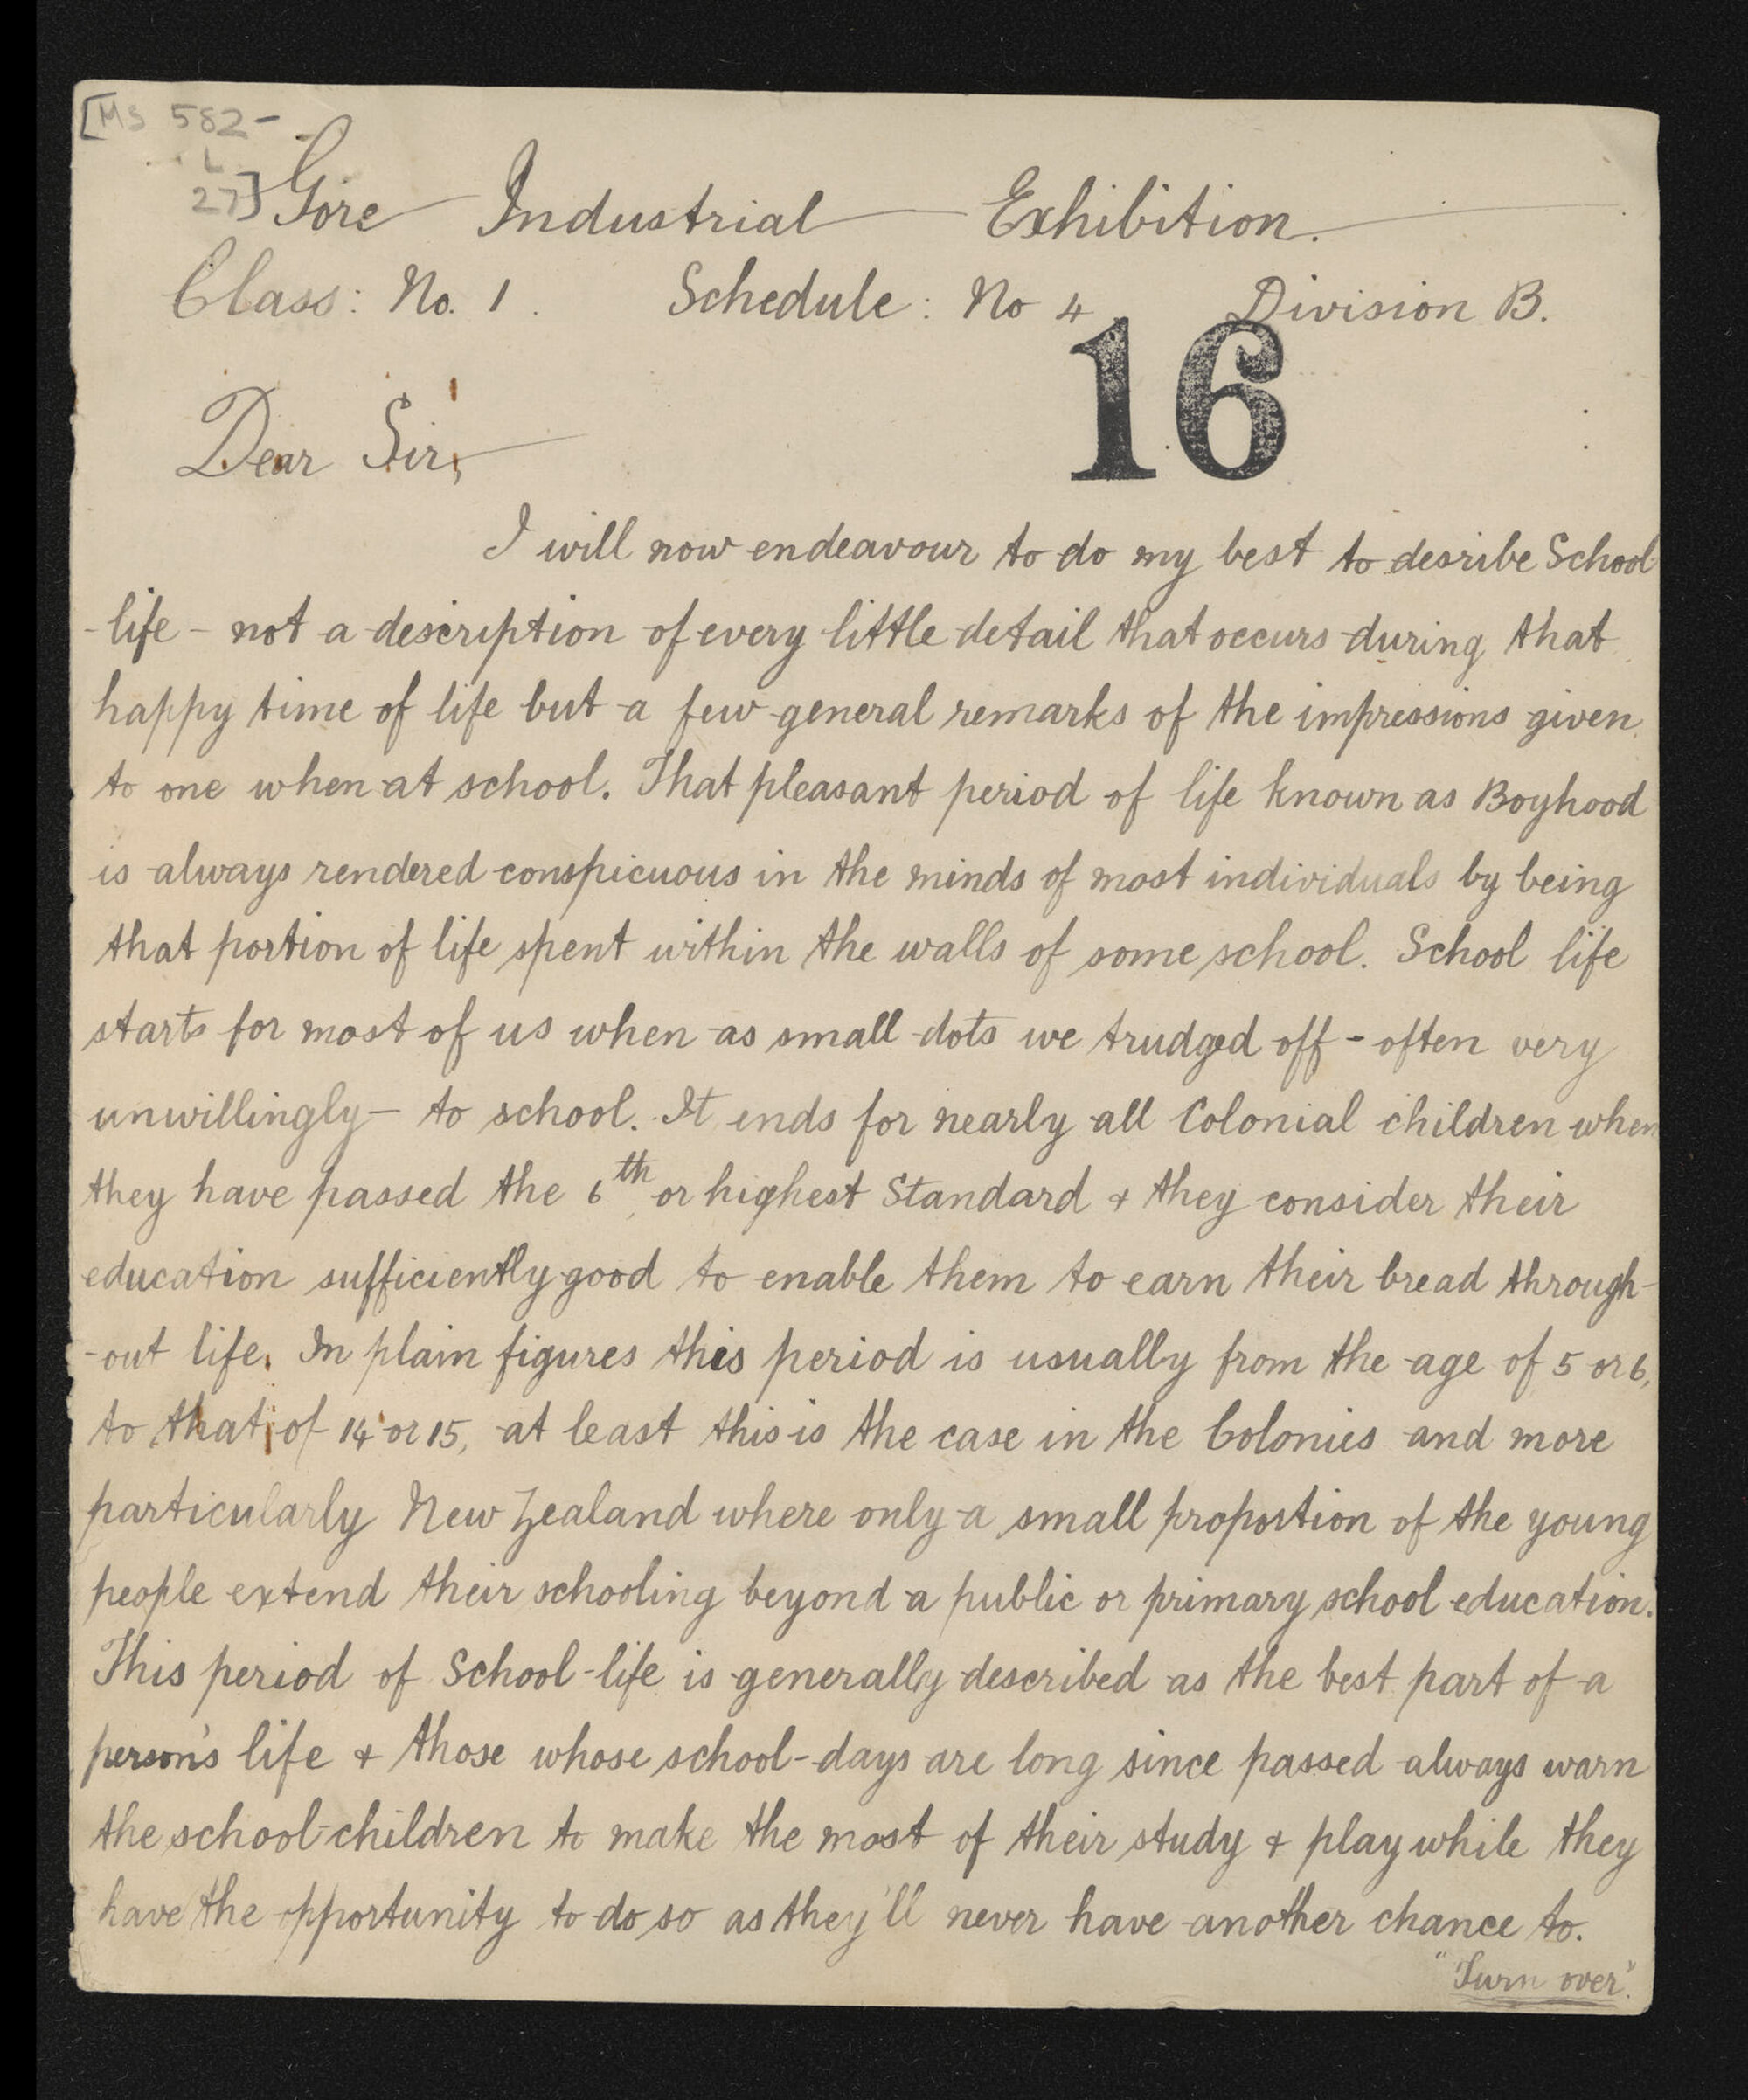 [MS 582-
L
27]
Gore Industrial Exhibition.
Class: No. 1. Schedule: No 4 Division B.
16
Dear Sir,
I will now endeavour to do my best to desribe School
-life - not a description of every little detail that occurs during that
happy time of life but a few general remarks of the impressions given
to one when at school. That pleasant period of life known as Boyhood
is always rendered conspicuous in the minds of most individuals by being
that portion of life spent within the walls of some school. School life
starts for most of us when as small dots we trudged off - often very
unwillingly - to school. It ends for nearly all Colonial children when
they have passed the 6th or highest Standard & they consider their
education sufficiently good to enable them to earn their bread through-
-out life. In plain figures this period is usually from the age of 5 or 6,
to that of 14 or 15, at least this is the case in the Colonies and more
particularly New Zealand where only a small proportion of the young
people extend their schooling beyond a public or primary school education.
This period of School-life is generally described as the best part of a
person's life & those whose school-days are long since passed always warn
the school-children to make the most of their study & play while they
have the opportunity to do so as they'll never have another chance to.
"Turn over".